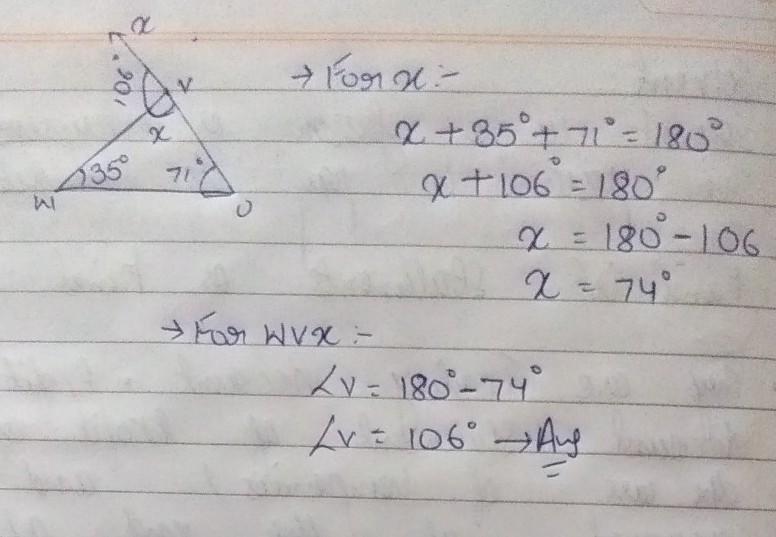 x
106°
V
x
35°
71°
W
U
→ For x :-
x + 35° + 71° = 180°
x + 106° = 180°
x = 180° - 106
x = 74°
→ For WVX :-
∠V = 180° - 74°
∠V = 106° → Ans